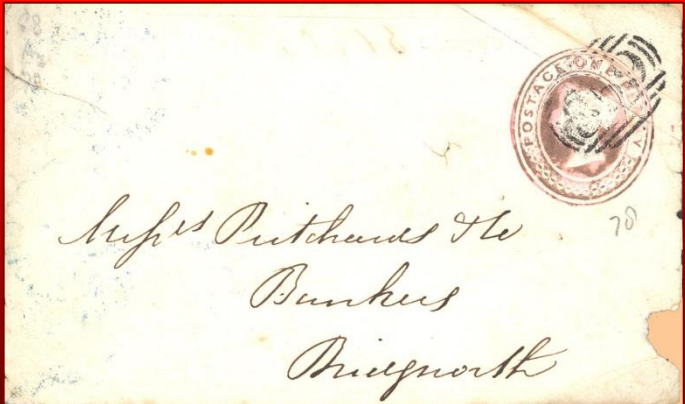 POSTAGE ONE PENNY
Messrs Pritchards & Co
Bankers
Bridgnorth
78